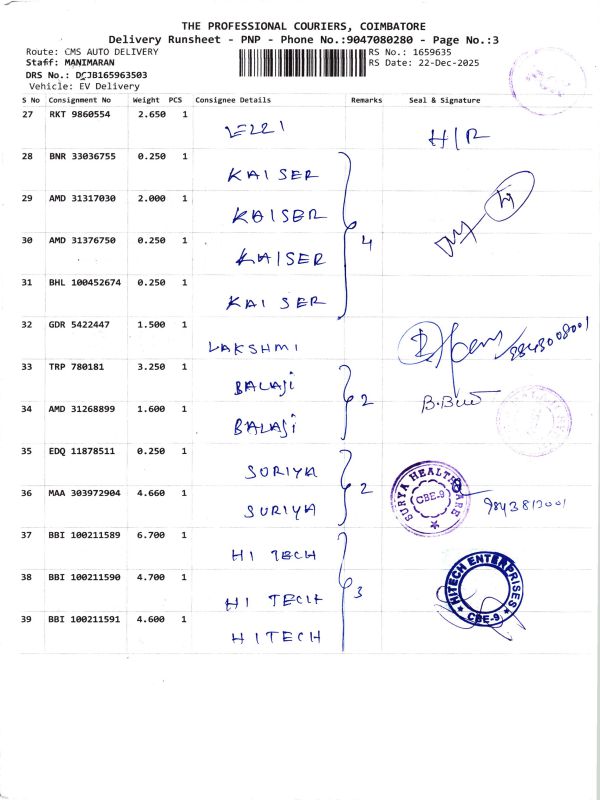 THE PROFESSIONAL COURIERS, COIMBATORE
Delivery Runsheet - PNP - Phone No.:9047080280 - Page No.:3
Route: CMS AUTO DELIVERY RS No.: 1659635
Staff: MANIMARAN RS Date: 22-Dec-2025
DRS No.: DCJB165963503
Vehicle: EV Delivery
S No Consignment No Weight PCS Consignee Details Remarks Seal & Signature
27 RKT 9860554 2.650 1 H/R
28 BNR 33036755 0.250 1 KAISER
29 AMD 31317030 2.000 1 KAISER
30 AMD 31376750 0.250 1 KAISER 4
31 BHL 100452674 0.250 1 KAISER
32 GDR 5422447 1.500 1 LAKSHMI
33 TRP 780181 3.250 1 BALAJI 2
34 AMD 31268899 1.600 1 BALAJI
35 EDQ 11878511 0.250 1 SURIYA
36 MAA 303972904 4.660 1 SURIYA 2 SURYA HEALTH CARE CBE-9
37 BBI 100211589 6.700 1 HI TECH
38 BBI 100211590 4.700 1 HI TECH 3 HITECH ENTERPRISES CBE-9
39 BBI 100211591 4.600 1 HITECH